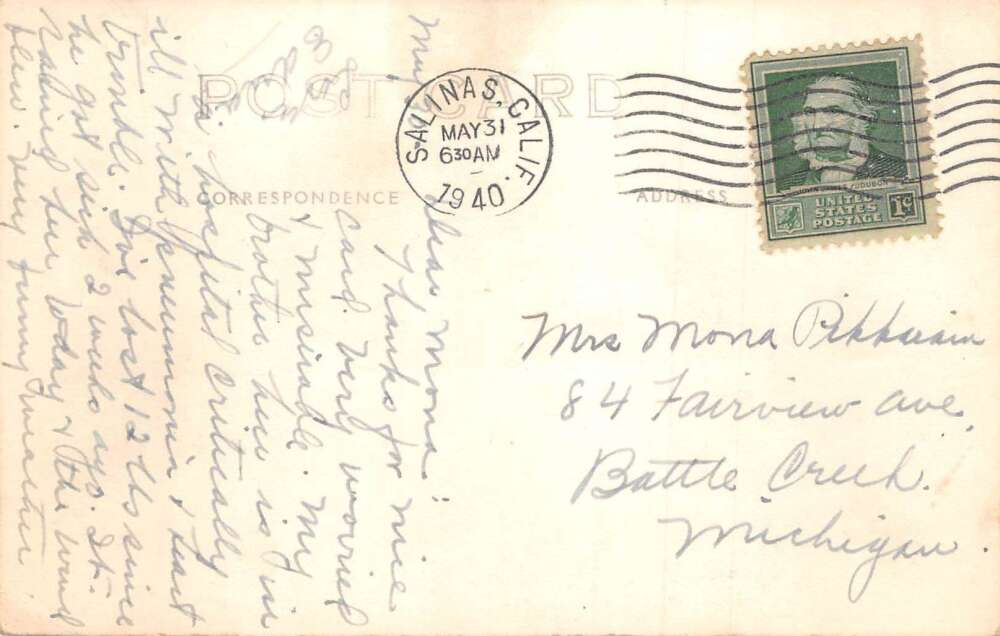 POST CARD
CORRESPONDENCE
ADDRESS
SALINAS, CALIF.
MAY 31
6 30 AM
1940
JOHN JAMES AUDUBON
UNITED
STATES
POSTAGE
1¢
Mrs Mona
84 Fairview Ave.
Battle Creek.
Michigan.
Dear Mona:
Thanks for nice
card. Very worried
& miserable. My
brother here is in
hospital critically
ill with pneumonia & heart
trouble. I've lost 12 lbs since
he got sick 2 weeks ago. It
raining here today & the wind
blew. Very funny weather